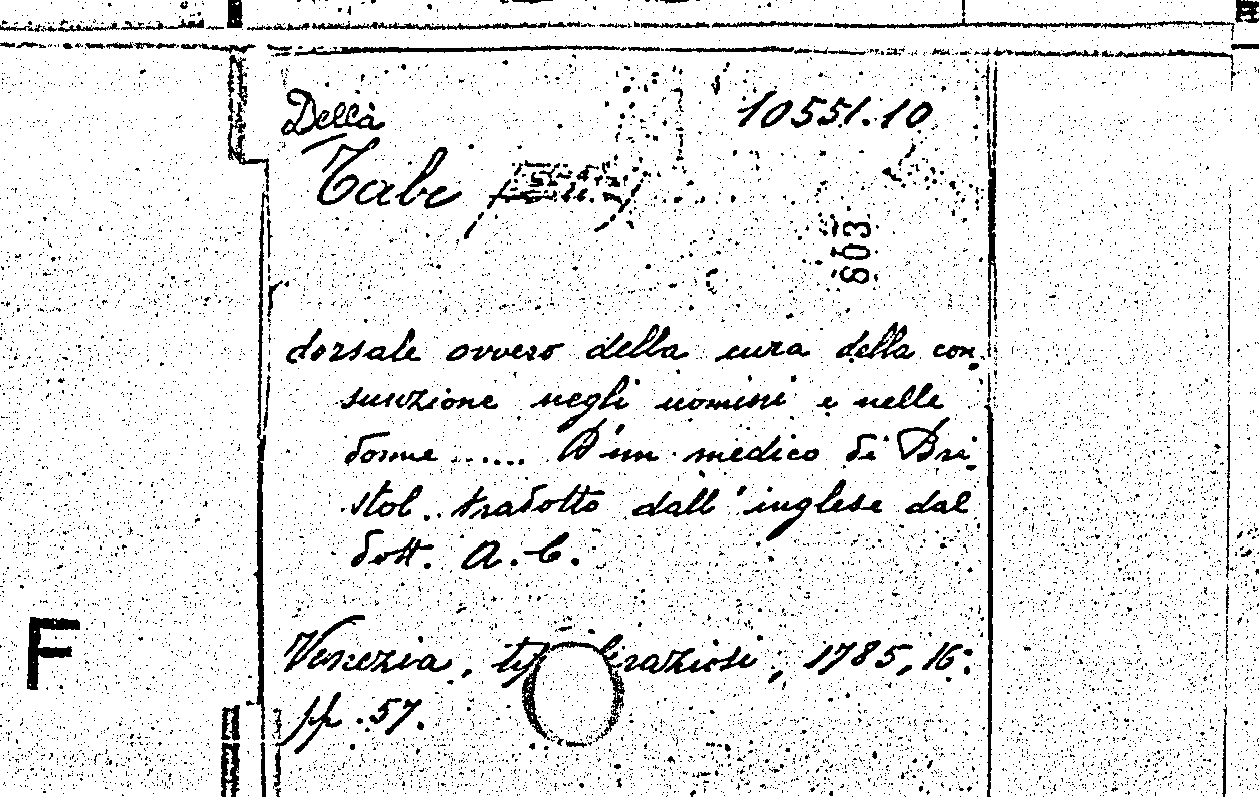 Della 10551.10
Tabe
803
dorsale ovvero della cura della con-
sunzione negli uomini e nelle
donne ...... D'un medico di Bri-
stol. tradotto dall'inglese dal
dott. A. C.
Venezia, tip. Graziosi, 1785, 16:
pp. 57.
F